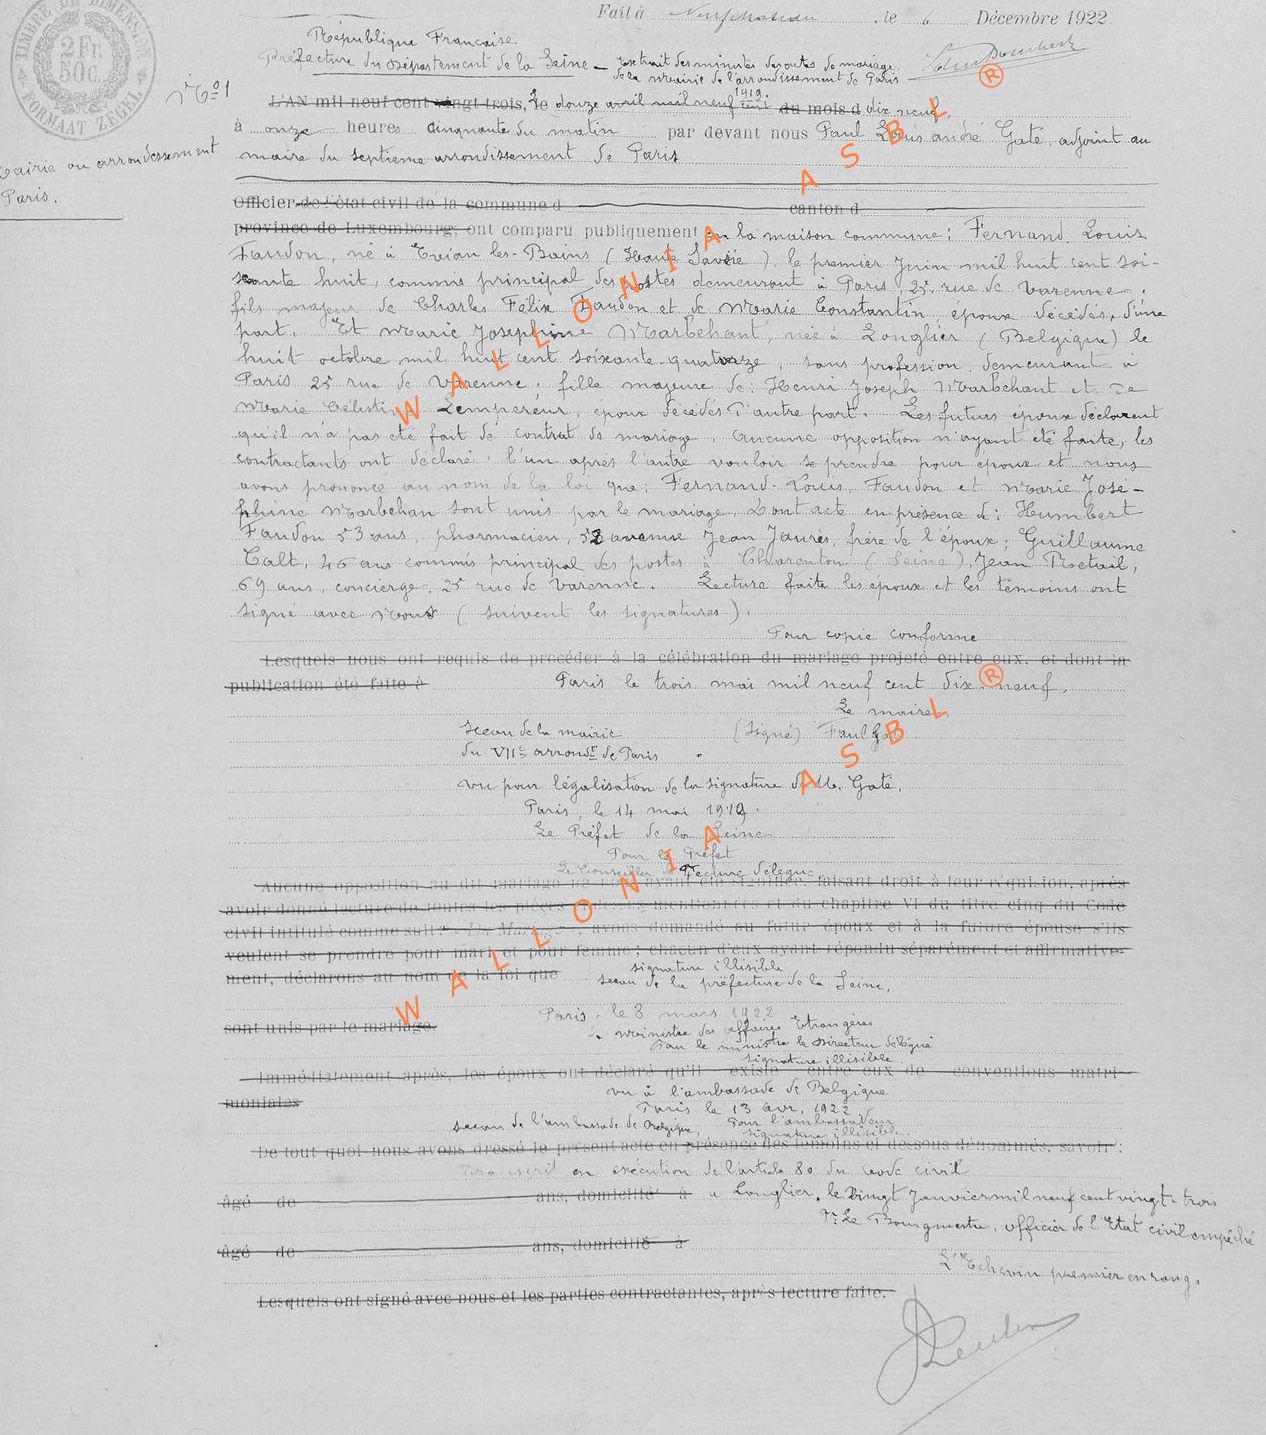 TIMBRE DE DIMENSION
2 Fr. 50 c.
FORMAAT ZEGEL
Fait à Neufchateau, le 6 Décembre 1922
République Française
Préfecture du Département de la Seine – Extrait des minutes des actes de mariage
de la mairie de l'arrondissement de Paris
N° 1
L'AN mil neuf cent vingt-trois, le douze avril mil neuf cent 1919. du mois d dix neuf,
à onze heures cinquante du matin par devant nous Paul Louis andré Gaté, adjoint au
maire du septieme arrondissement de Paris
Mairie au arrondissement
Paris.
Officier de l'état civil de la commune d canton d
province de Luxembourg, ont comparu publiquement en la maison commune: Fernand Louis
Faudon, né à Evian les-Bains (Haute Savoie), le premier Juin mil huit cent soi-
xante huit, commis principal des postes demeurant à Paris, 25, rue de Varenne,
fils majeur de Charles Félix Faudon et de Marie Constantin, époux décédés, d'une
part. Et Marie Josephine Marbehant, née à Longlier (Belgique) le
huit octobre mil huit cent soixante-quatorze, sans profession, demeurant à
Paris 25 rue de Varenne, fille majeure de: Henri Joseph Marbehant et de
Marie Célestine Lempereur, époux décédés d'autre part. Les futurs époux déclarent
qu'il n'a pas été fait de contrat de mariage. Aucune opposition n'ayant été faite, les
contractants ont déclaré l'un après l'autre vouloir se prendre pour époux et nous
avons prononcé au nom de la loi que: Fernand-Louis, Faudon et Marie José-
phine Marbehan sont unis par le mariage. Dont acte en présence de: Humbert
Faudon 53 ans, pharmacien, 52 avenue Jean Jaurès, frère de l'époux; Guillaume
Calt, 46 ans commis principal des postes à Charenton (Seine), Jean Retail,
69 ans, concierge, 25 rue de Varenne. Lecture faite les époux et les témoins ont
signé avec Nous (suivent les signatures).
Pour copie conforme
Lesquels nous ont requis de procéder à la célébration du mariage projeté entre eux, et dont la
publication été faite à Paris le trois mai mil neuf cent dix-neuf,
Le maire,
Sceau de la mairie (signé) Paul Gaté
du VIIe arrondt de Paris
vu pour légalisation de la signature de M. Gaté,
Paris, le 14 mai 1919.
Le Préfet de la Seine
Pour le Préfet
Le Conseiller de Préfecture délégué
Aucune opposition au dit mariage ne nous ayant été signifiée, faisant droit à leur réquisition, après
avoir donné lecture de toutes les pièces ci-dessus mentionnées et du chapitre VI du titre cinq du Code
civil intitulé comme suit: Du Mariage, avons demandé au futur époux et à la future épouse s'ils
veulent se prendre pour mari et pour femme; chacun d'eux ayant répondu séparément et affirmative-
ment, déclarons au nom de la loi que
signature illisible
sceau de la préfecture de la Seine,
Paris, le 8 mars 1922
sont unis par le mariage.
Le Ministre des affaires Etrangères
Pour le ministre le Directeur délégué
signature illisible
Immédiatement après, les époux ont déclaré qu'il existe entre eux de conventions matri-
moniales
vu à l'ambassade de Belgique
Paris le 13 avr. 1922
sceau de l'ambassade de Belgique, Pour l'ambassadeur
signature illisible
De tout quoi nous avons dressé le présent acte en présence des témoins ci-dessous dénommés, savoir:
Transcrit en exécution de l'article 80 du Code civil
âgé de ans, domicilié à a Longlier, le Vingt Janvier mil neuf cent vingt-trois
Pr: Le Bourgmestre, officier de l'Etat civil empêché
âgé de ans, domicilié à
L'Echevin premier en rang,
Lesquels ont signé avec nous et les parties contractantes, après lecture faite.
WALLONIA ASBL ®
WALLONIA ASBL ®